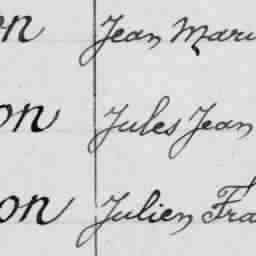 on Jean Mari
on Jules Jean
on Julien Fra